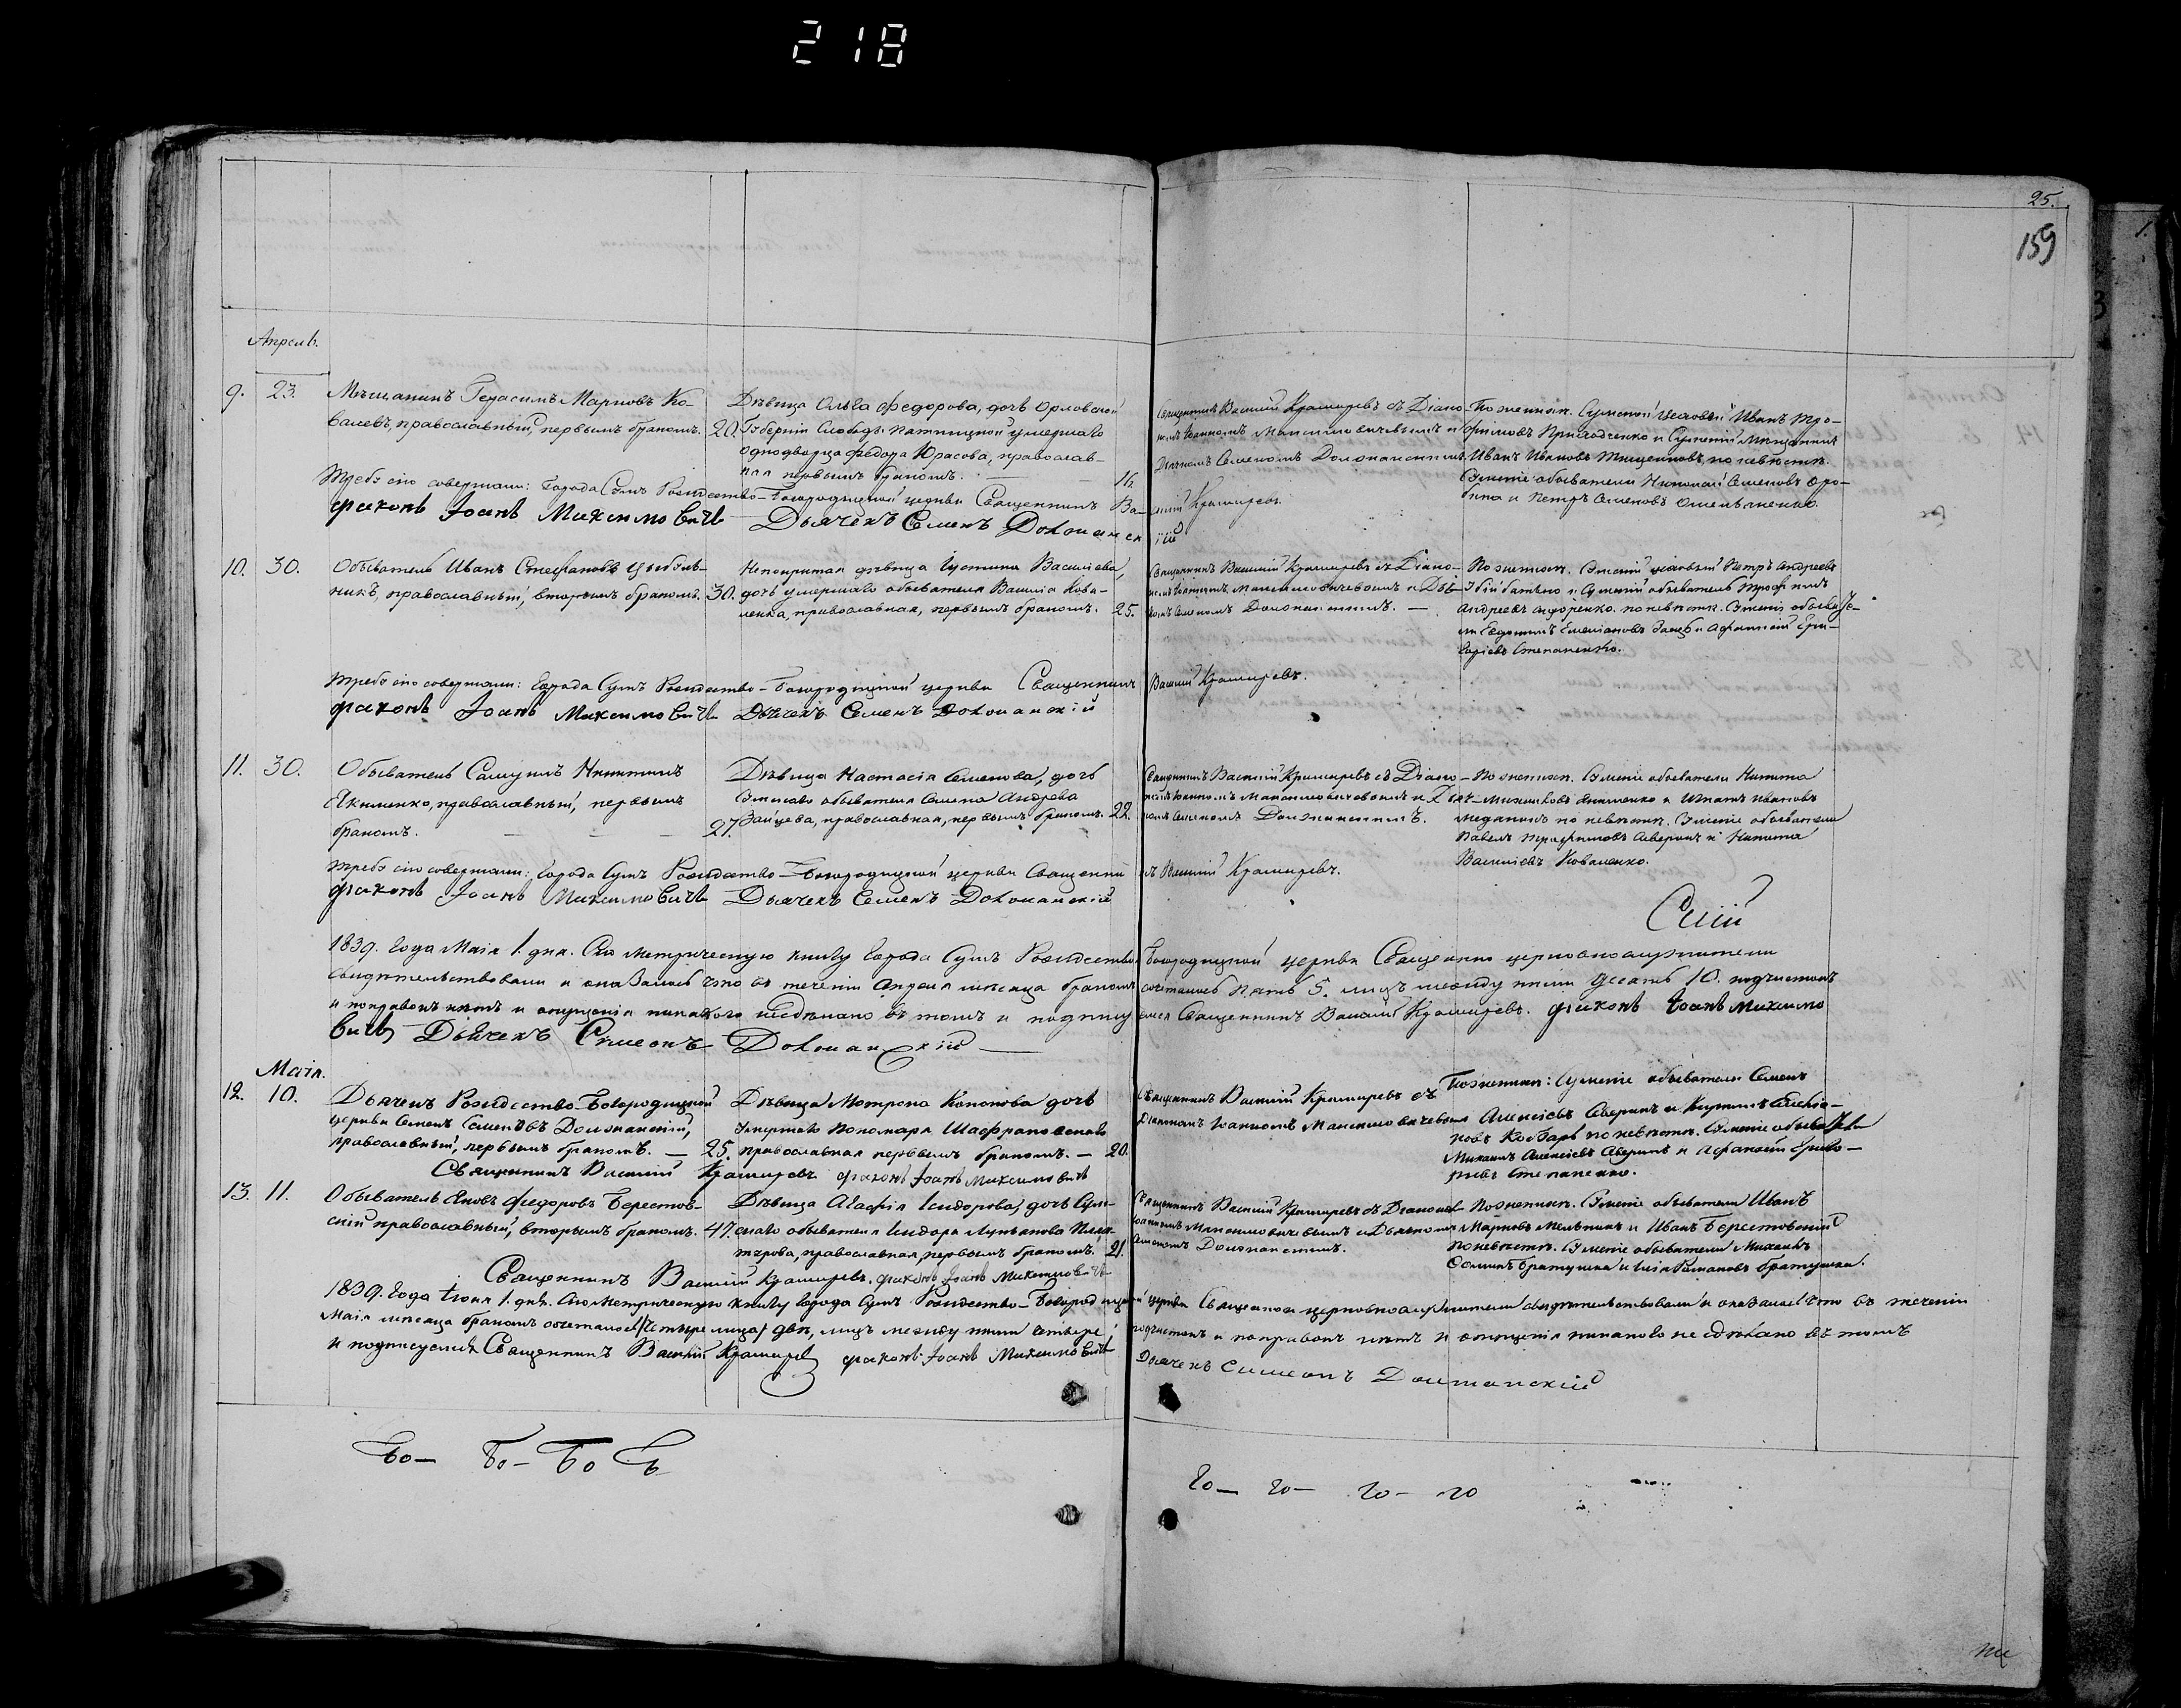 218
25.
159
Апрель.
9. 23. Мѣщанинъ Герасимъ Марковъ Ко-
валевъ, православный, первымъ бракомъ. 20.
Дѣвица Ольга Федорова, дочь Орловской
Губерніи Слободы Пятницкой умершаго
однодворца Федора Юрасова, православ-
ная первымъ бракомъ. — 16.
Священникъ Василій Крамаревъ съ Діако-
номъ Іоанномъ Максимовичевымъ и
Дьячкомъ Семеномъ Должанскимъ.
По женихѣ. Сумскій Иванъ Тро-
фимовъ Приходченко и Сумскій Мѣщанинъ
Иванъ Ивановъ Тищенковъ, по невѣстѣ.
Сумскіе обыватели Николай Семеновъ
и Петръ Семеновъ Омельченко.
Требу сію совершали: Города Сумъ Рождество-Богородицкой церкви Священникъ Василій Крамаревъ.
Діаконъ Іоанъ Максимовичъ Дьячекъ Семенъ Должанскій
10. 30. Обыватель Иванъ Стефановъ Цыбуль-
никъ, православный, вторымъ бракомъ. 30.
Непокрытая дѣвица Іустина Васильева,
дочь умершаго обывателя Василія Кова-
ленка, православная, первымъ бракомъ. 25.
Священникъ Василій Крамаревъ съ Діако-
номъ Іоанномъ Максимовичевымъ и Дья-
чкомъ Семеномъ Должанскимъ. —
По женихѣ. Сумскій Петръ Андреевъ
и Сумскій обыватель Трофимъ
Андреевъ по невѣстѣ. Сумскіе обывате-
ли Евдокимъ Емельяновъ Заецъ и Афанасій Гри-
горіевъ Степаненко.
Требу сію совершали: Города Сумъ Рождество-Богородицкой церкви Священникъ Василій Крамаревъ.
Діаконъ Іоанъ Максимовичъ Дьячекъ Семенъ Должанскій
11. 30. Обыватель Самуилъ Никитинъ
Якименко, православный, первымъ
бракомъ. — — 27.
Дѣвица Настасія Семенова, дочь
Сумскаго обывателя Семена Андреева
Зайцева, православная, первымъ бракомъ. 22.
Священникъ Василій Крамаревъ съ Діако-
номъ Іоанномъ Максимовичевымъ и Дьяч-
комъ Семеномъ Должанскимъ.
По женихѣ. Сумскіе обыватели Никита
Якименко и Игнатъ Ивановъ
по невѣстѣ. Сумскіе обыватели
Павелъ Трофимовъ Аверинъ и Никита
Василіевъ Коваленко.
Требу сію совершали: Города Сумъ Рождество-Богородицкой церкви Священникъ Василій Крамаревъ.
Діаконъ Іоанъ Максимовичъ Дьячекъ Семенъ Должанскій
1839. Года Маія 1. дня. Сію Метрическую книгу Города Сумъ Рождество Богородицкой церкви Священно церковнослужители
свидѣтельствовали и оказалось что въ теченіи Апреля мѣсяца бракомъ сочеталось пять 5. лицъ между ними десять 10. подчистокъ
и поправокъ нѣтъ и опущенія никакого несдѣлано въ томъ и подписуемся Священникъ Василій Крамаревъ. Діаконъ Іоанъ Максимо
вичъ Дьячекъ Симеонъ Должанскій —
Маія.
12. 10. Дьячекъ Рождество-Богородицкой
церкви Семенъ Семеновъ Должанскій,
православный, первымъ бракомъ. — 25.
Дѣвица Мотрона Кононова дочь
умершаго Пономаря Шафрановскаго
православная первымъ бракомъ. — 20.
Священникъ Василій Крамаревъ съ
Діакономъ Іоанномъ Максимовичевымъ
По женихѣ: Сумскіе обыватели Семенъ
Алексіевъ Аверинъ и
Кобзарь по невѣстѣ. Сумскіе обыватели
Михаилъ Алексіевъ Аверинъ и Афанасій Григо-
ріевъ Степаненко.
Священникъ Василій Крамаревъ Діаконъ Іоанъ Максимовичъ
13. 11. Обыватель Яковъ Федоровъ Берестов-
скій православный, вторымъ бракомъ. 47.
Дѣвица Агафія Исидорова, дочь Сум-
скаго обывателя Исидора Лукьянова
православная, первымъ бракомъ. 21.
Священникъ Василій Крамаревъ съ Діакономъ
Іоанномъ Максимовичевымъ и Дьячкомъ
Семеномъ Должанскимъ.
По женихѣ. Сумскіе обыватели Иванъ
Марковъ Мельникъ и Иванъ Берестовскій
по невѣстѣ. Сумскіе обыватели Михаилъ
Братушка и Илія Романовъ Братушка.
Священникъ Василій Крамаревъ. Діаконъ Іоанъ Максимовичъ
1839. Года Іюня 1. дня. Сію Метрическую книгу Города Сумъ Рождество-Богородицкой церкви Священно церковнослужители свидѣтельствовали и оказалось что въ теченіи
Маія мѣсяца бракомъ сочеталось (четыре лица) двѣ, лицъ между ними четыре подчистокъ и поправокъ нѣтъ и опущенія никакого не сдѣлано въ томъ
и подписуемся Священникъ Василій Крамаревъ Діаконъ Іоанъ Максимовичъ Дьячекъ Симеонъ Должанскій